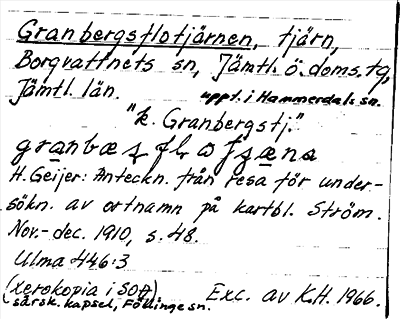 Granbergsflotjärnen, tjärn,
Borgvattnets sn, Jämtl. ö. doms. tg,
Jämtl. län.
uppt. i Hammerdals sn.
"k. Granbergstj."
H. Geijer: Anteckn. från resa för under-
sökn. av ortnamn på kartbl. Ström.
Nov.- dec. 1910, s. 48.
Ulma 446:3
(xerokopia i SOA)
särsk. kapsel, Föllinge sn.
Exc. av K.H. 1966.